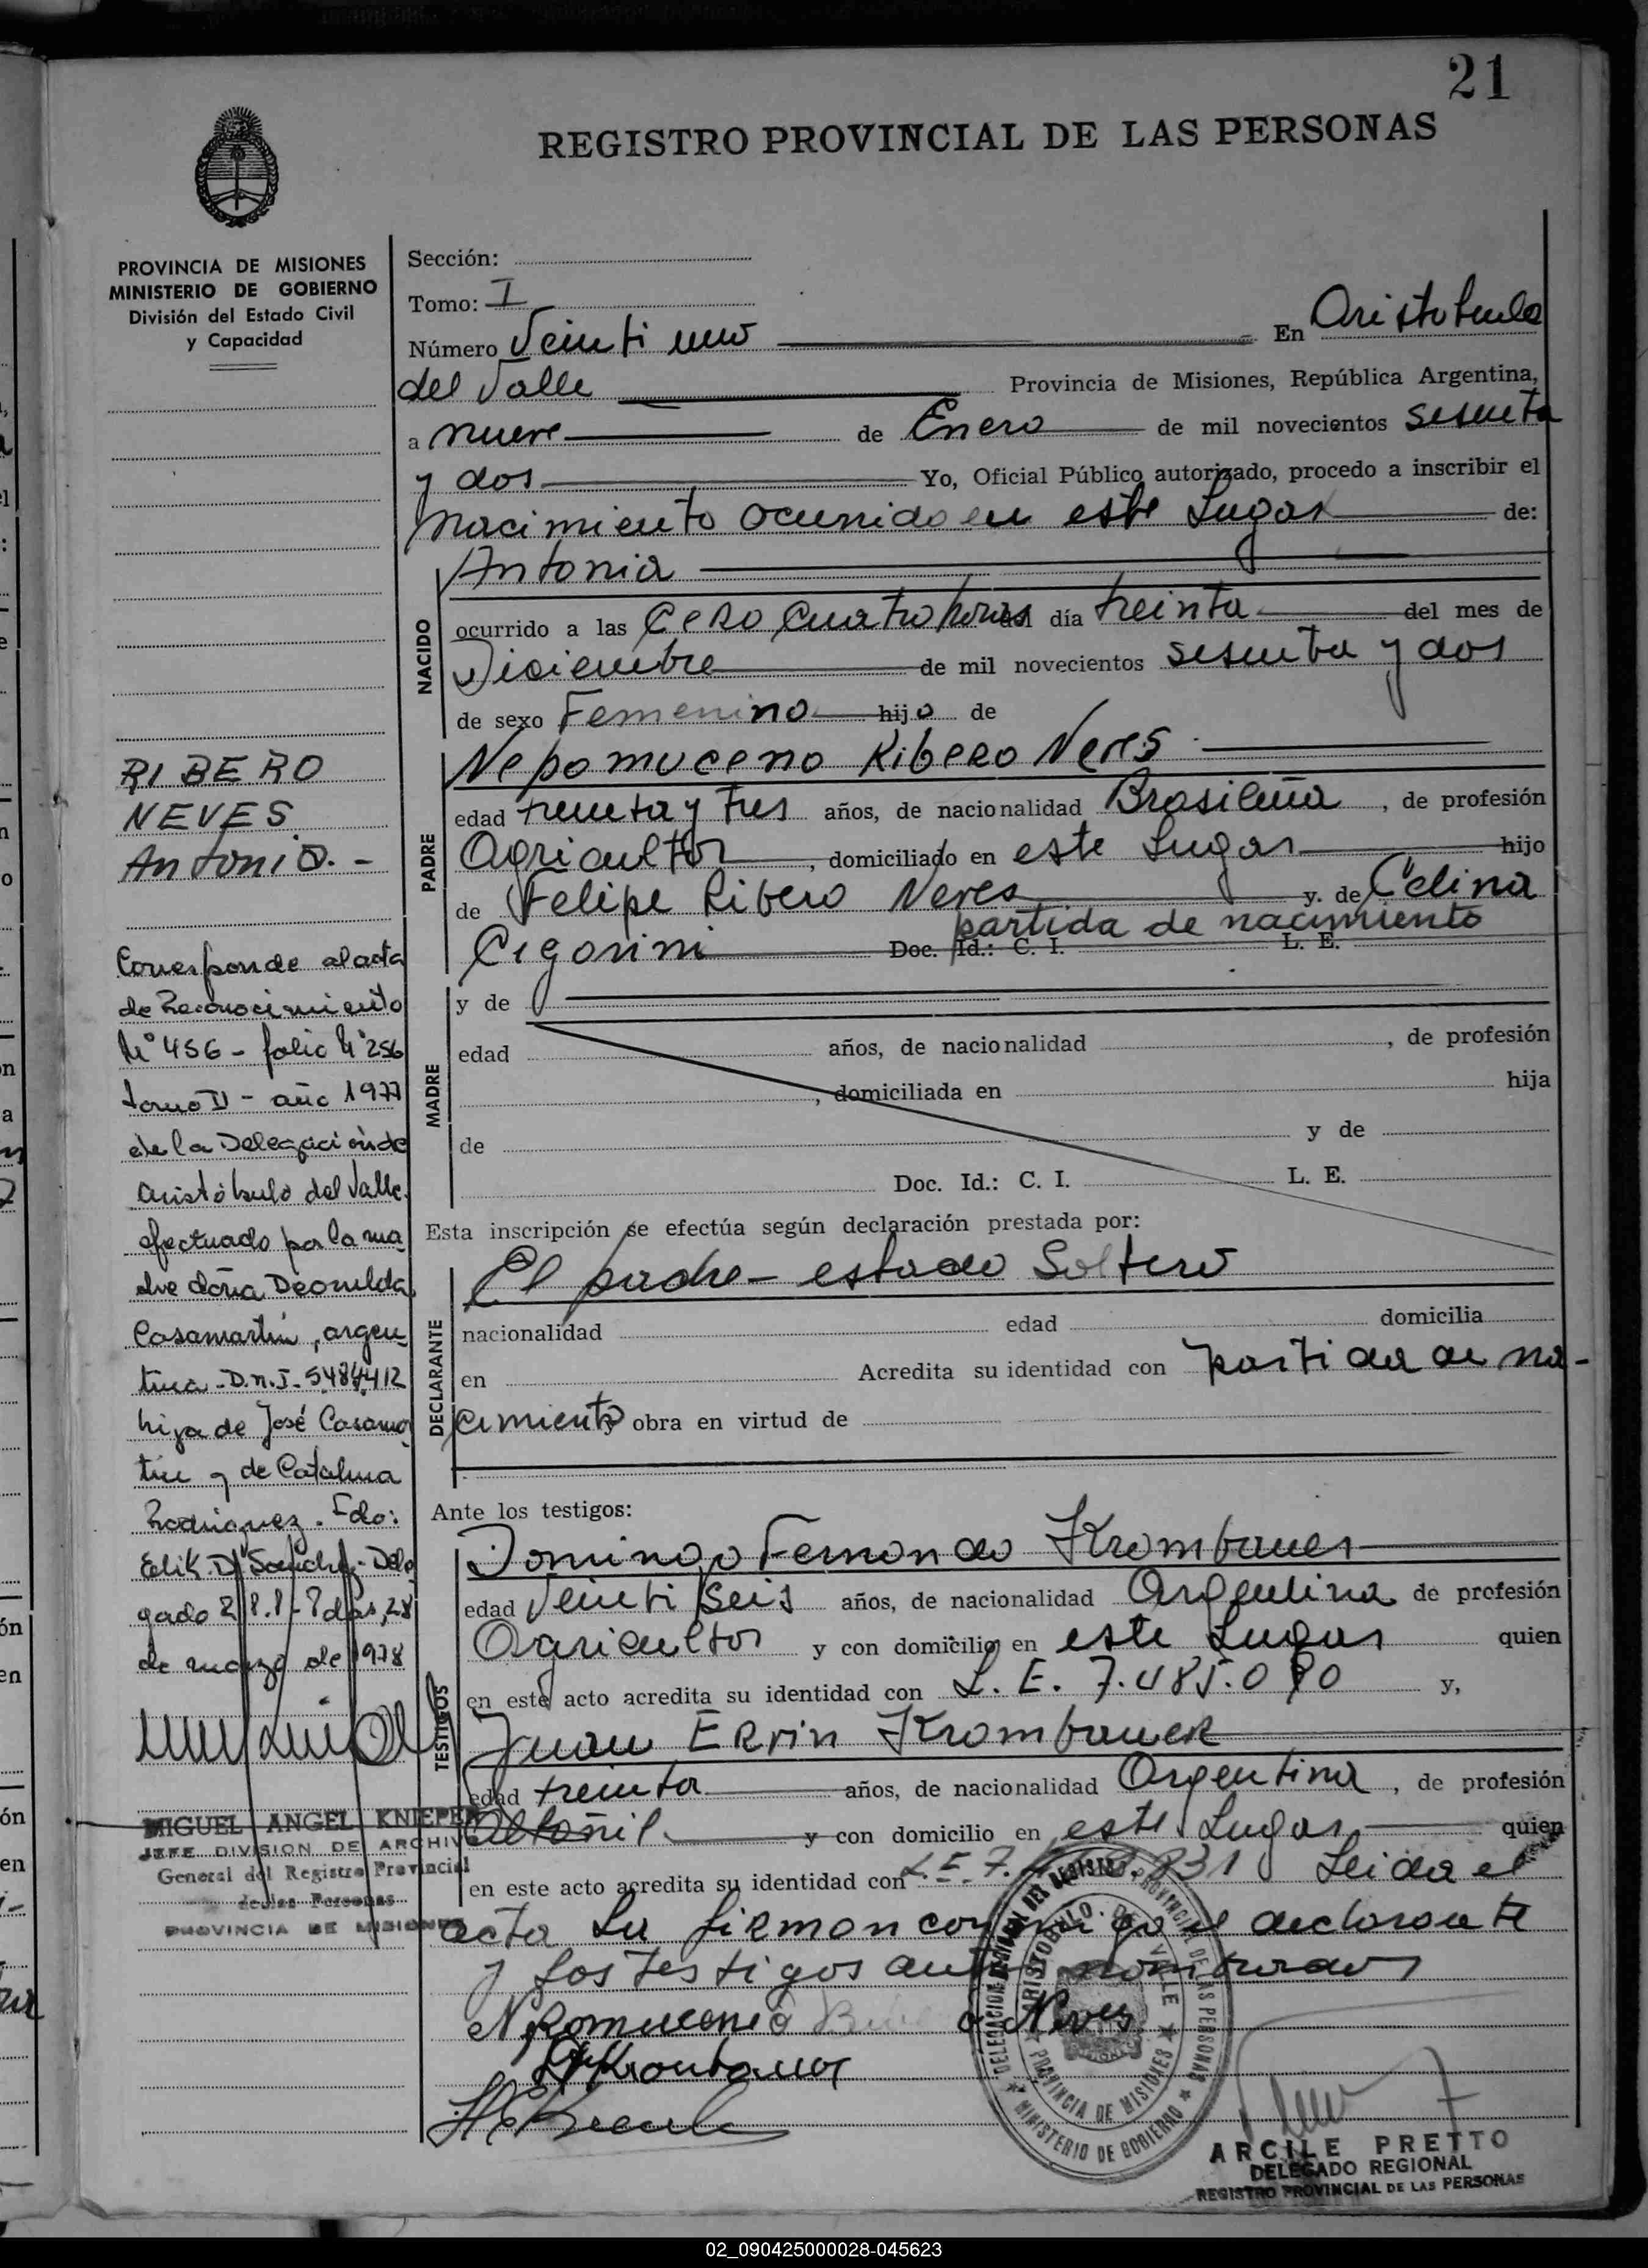 21
REGISTRO PROVINCIAL DE LAS PERSONAS
PROVINCIA DE MISIONES
MINISTERIO DE GOBIERNO
División del Estado Civil
y Capacidad
RIBERO
NEVES
Antonia.-
Corresponde al acta
de Reconocimiento
Nº 456 - folio Nº 256
tomo II - año 1977
de la Delegación de
Aristóbulo del Valle.
efectuado por la ma
dre doña Deonilda
Casamartin, argen
tina - D.N.I. 5484412
hija de José Casamar
tin y de Catalina
Rodriguez. Fdo:
Edik D. Sanchez - Dele
gado
de marzo de 1978
MIGUEL ANGEL KNIEPER
JEFE DIVISION DE ARCHIVO
General del Registro Provincial
de las Personas
PROVINCIA DE MISIONES
Sección:
Tomo: I
Número Veinti uno En Aristobulo
del Valle Provincia de Misiones, República Argentina,
a nueve de Enero de mil novecientos sesenta
y dos Yo, Oficial Público autorizado, procedo a inscribir el
nacimiento ocurrido en este Lugar de:
NACIDO
Antonia
ocurrido a las Cero Cuatro horas día treinta del mes de
Diciembre de mil novecientos sesenta y dos
de sexo Femenino hijo de
PADRE
Nepomuceno Ribero Neves
edad treinta y tres años, de nacionalidad Brasileña, de profesión
Agricultor, domiciliado en este Lugar hijo
de Felipe Ribero Neves y de Celina
Cigorini Doc. Id.: C. I. partida de nacimiento L. E.
MADRE
y de
edad años, de nacionalidad , de profesión
, domiciliada en hija
de y de
Doc. Id.: C. I. L. E.
Esta inscripción se efectúa según declaración prestada por:
DECLARANTE
El padre - estado Soltero
nacionalidad edad domicilia
en Acredita su identidad con partida de na-
cimiento y obra en virtud de
Ante los testigos:
TESTIGOS
Domingo Fernando Krombauer
edad Veinti Seis años, de nacionalidad Argentina de profesión
Agricultor y con domicilio en este Lugar quien
en este acto acredita su identidad con L. E. 7.485.090 y,
Juan Ervin Krombauer
edad treinta años, de nacionalidad Argentina, de profesión
Albañil y con domicilio en este Lugar quien
en este acto acredita su identidad con L.E. 7. 831 Leida el
acta la firman conmigo el declarante
y los testigos ante nombrados
Nepomuceno Neves
DELEGACION REGIONAL DEL REGISTRO PROVINCIAL DE LAS PERSONAS
ARISTOBULO DEL VALLE
PROVINCIA DE MISIONES
MINISTERIO DE GOBIERNO
ARCILE PRETTO
DELEGADO REGIONAL
REGISTRO PROVINCIAL DE LAS PERSONAS
02_090425000028-045623